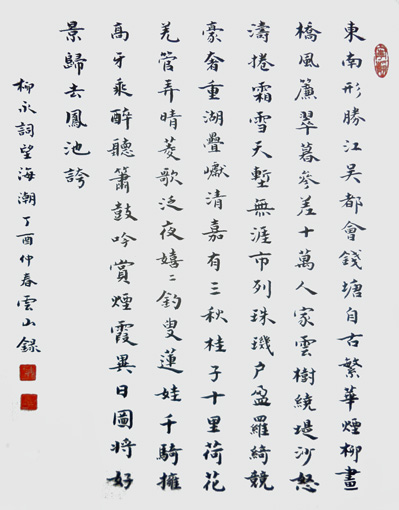 東南形勝江吳都會錢塘自古繁華煙柳畫
橋風簾翠暮參差十萬人家雲樹繞堤沙怒
濤捲霜雪天塹無涯市列珠璣戶盈羅綺競
豪奢重湖疊巘清嘉有三秋桂子十里荷花
羌管弄晴菱歌泛夜嬉々釣叟蓮娃千騎擁
高牙乘醉聽簫鼓吟賞煙霞異日圖將好
景歸去鳳池誇
柳永詞望海潮丁酉仲春雲山錄